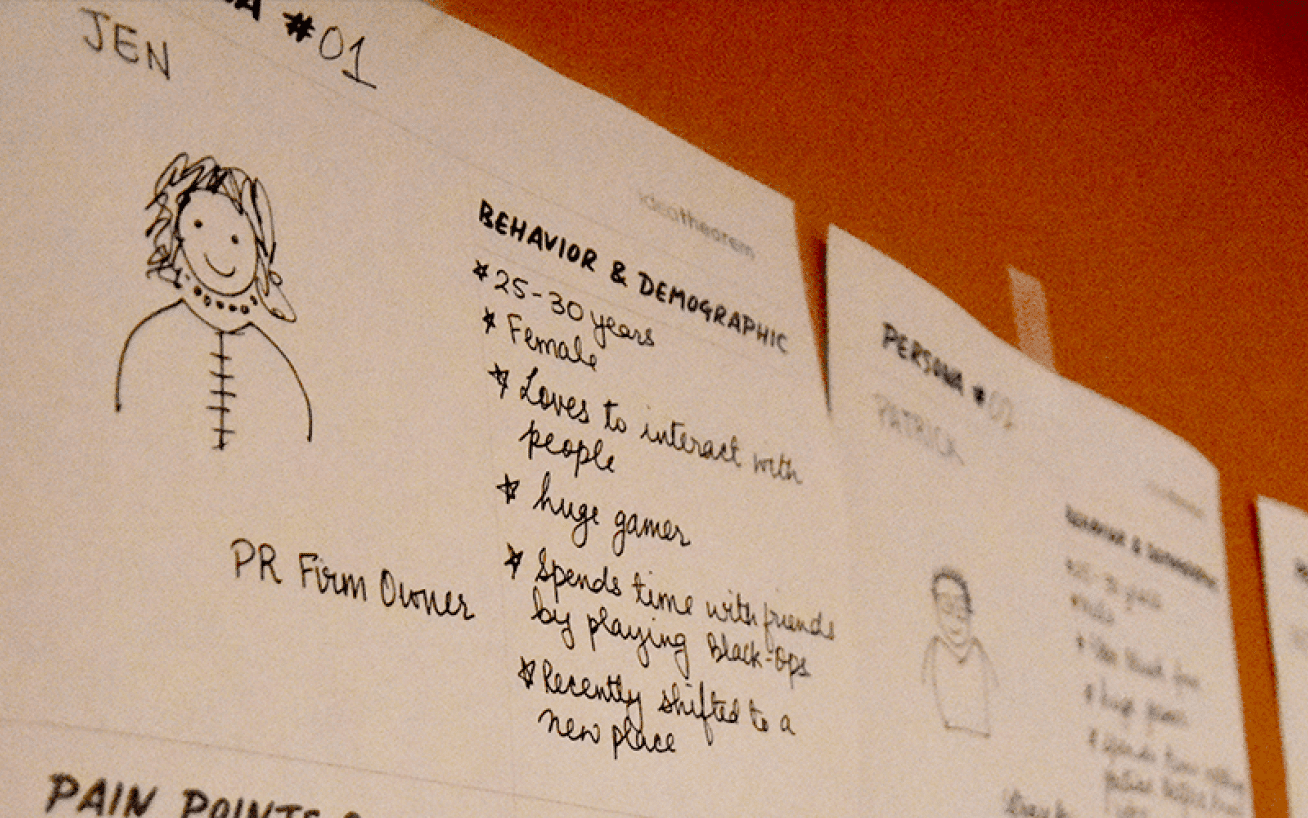 #01
JEN
ideatheorem
BEHAVIOR & DEMOGRAPHIC
* 25-30 years
* Female
* Loves to interact with
people
* huge gamer
* Spends time with friends
by playing Black-Ops
* Recently shifted to a
new place
PR Firm Owner
PAIN POINTS
PERSONA #02
PATRICK
BEHAVIOR &
* huge gamer